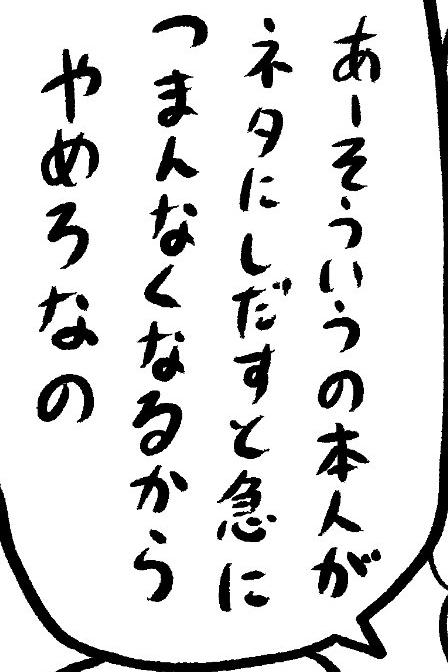 あーそういうの本人が
ネタにしだすと急に
つまんなくなるから
やめろなの